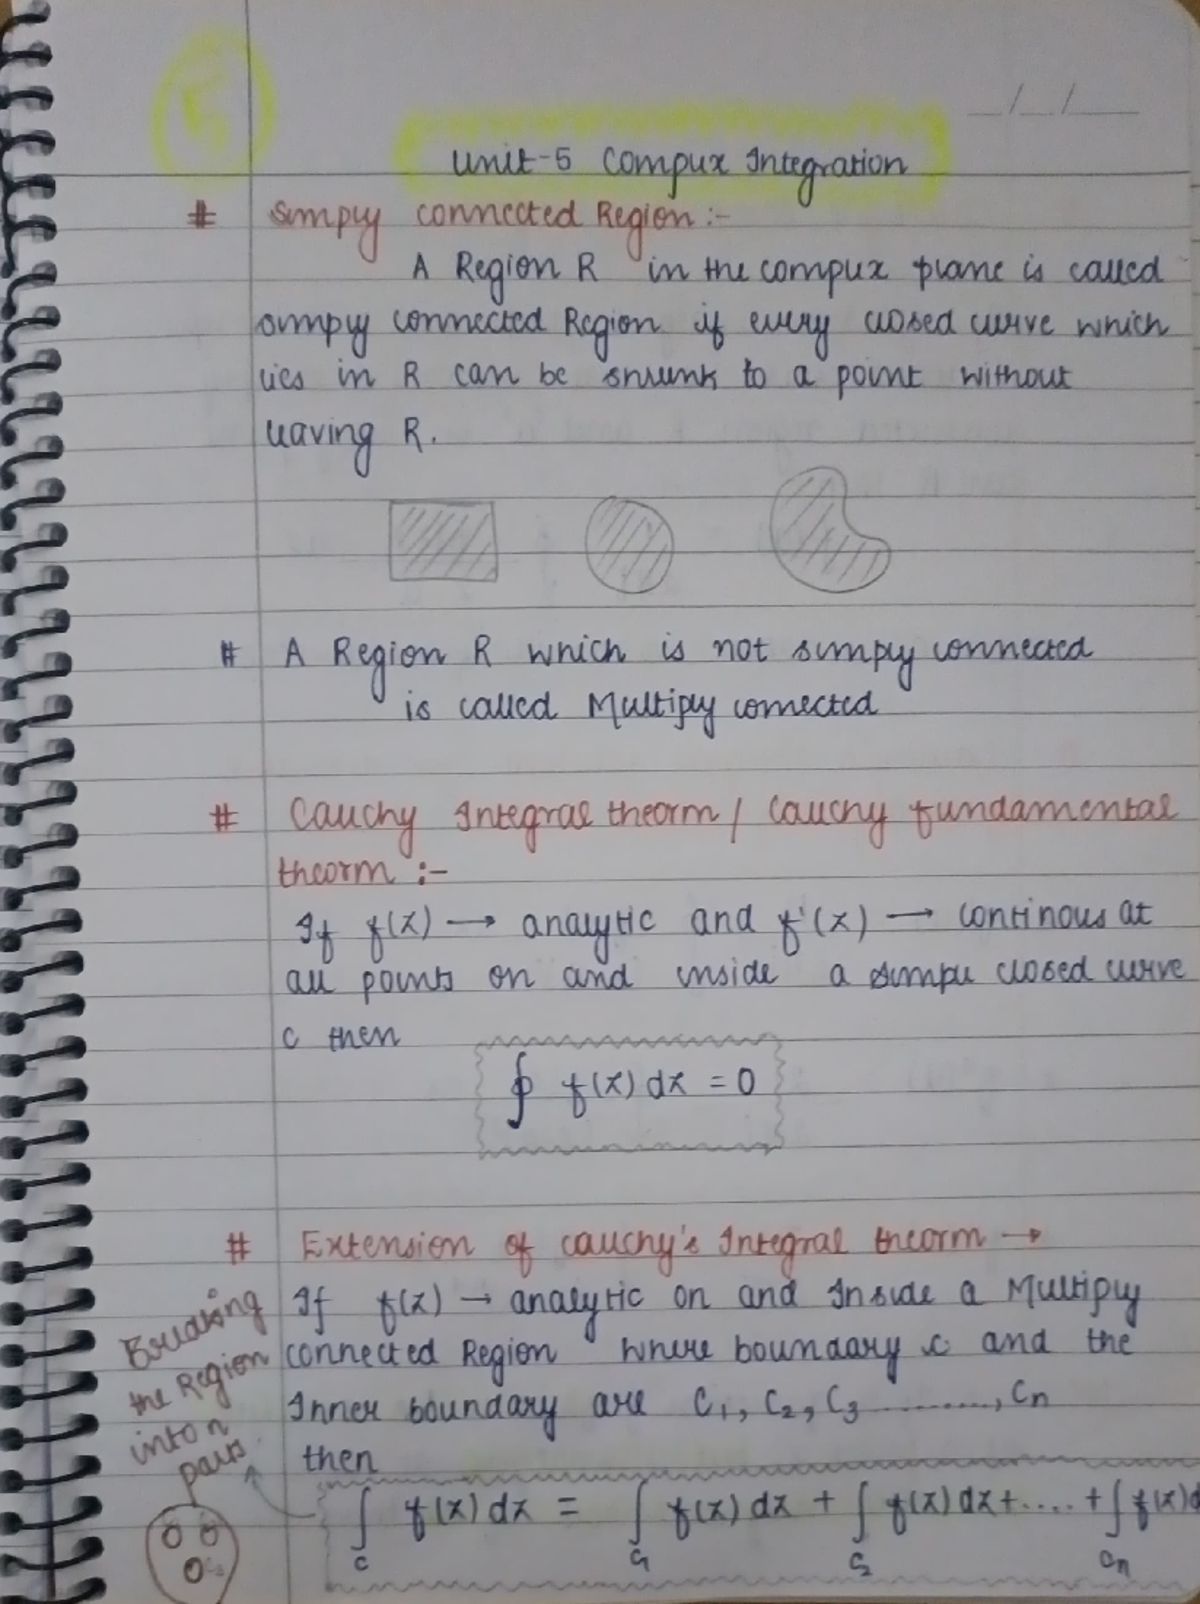 5
_/_/___
Unit-5 Complex Integration
# Simply connected Region :-
A Region R in the complex plane is called
simply connected Region if every closed curve which
lies in R can be shrunk to a point without
leaving R.
# A Region R which is not simply connected
is called Multiply connected
# Cauchy Integral theorm / Cauchy fundamental
theorm :-
If f(z) → analytic and f'(z) → continous at
all points on and inside a simple closed curve
c then
∮ f(z) dz = 0
# Extension of cauchy's Integral theorm →
If f(z) → analytic on and Inside a Multiply
connected Region where boundary c and the
Inner boundary are C1, C2, C3 .........., Cn
then
∫c f(z) dz = ∫c1 f(z) dz + ∫c2 f(z) dz + .... + ∫cn f(z) d
Breaking
the Region
into n
parts.